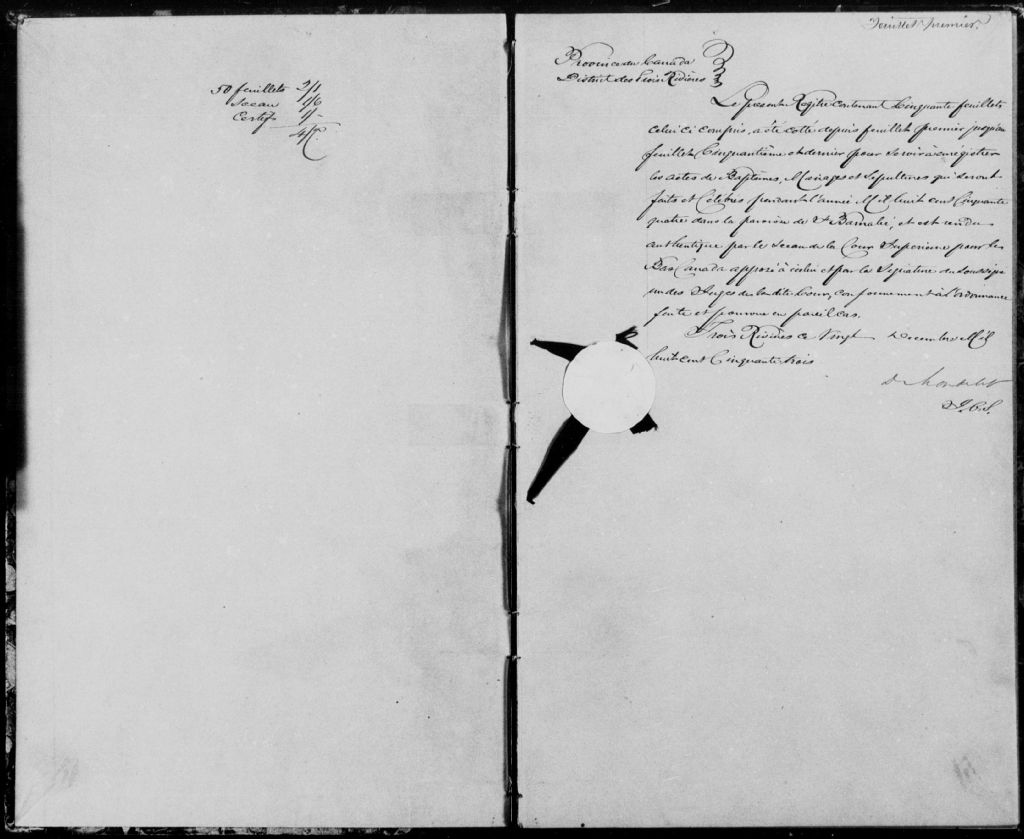 50 feuillets 2/1
Sceau 1/6
Certif 1/-
4/7
feuillet premier.
Province du Canada
District des Trois Rivières
Le Présent Régître contenant Cinquante feuillets
celui ci compris, a été cotté depuis feuillet premier jusqu'au
feuillet Cinquantième et dernier pour servir à enrégistrer
les actes de Baptêmes, Mariages et Sépultures qui seront
faits et Célébrés pendant l'année Mil huit cent Cinquante
quatre dans la paroisse de St Barnabé, et est rendu
authentique par le Sceau de la Cour Supérieure pour le
Bas Canada apposé à icelui et par la Signature du Soussigné
un des Juges de la dite Cour, conformément à l'ordonnance
faite et pourvue en pareil cas.
Trois Rivières ce Vingt Décembre Mil
huit cent Cinquante trois
D. Mondelet
J.C.S.